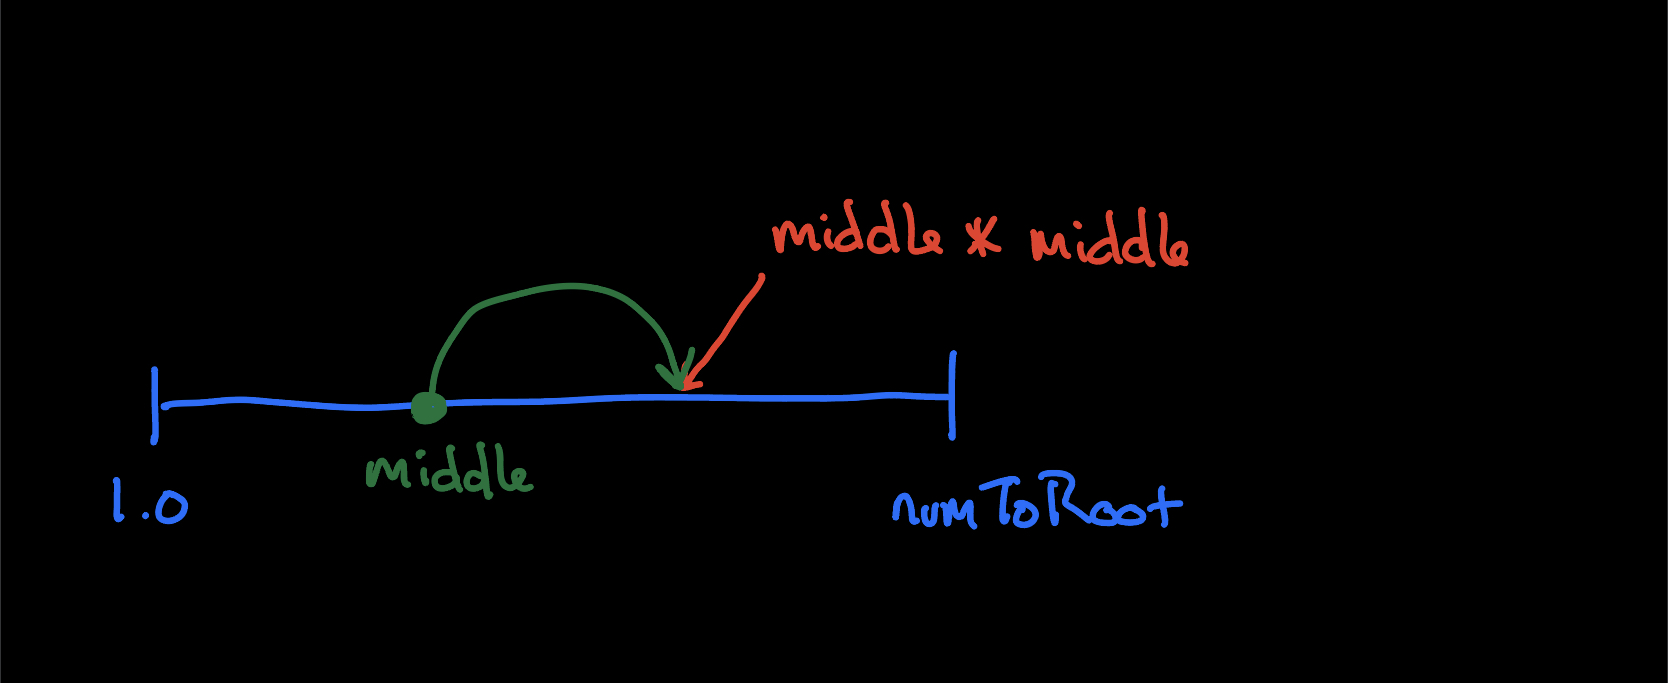 middle * middle
middle
1.0
numToRoot